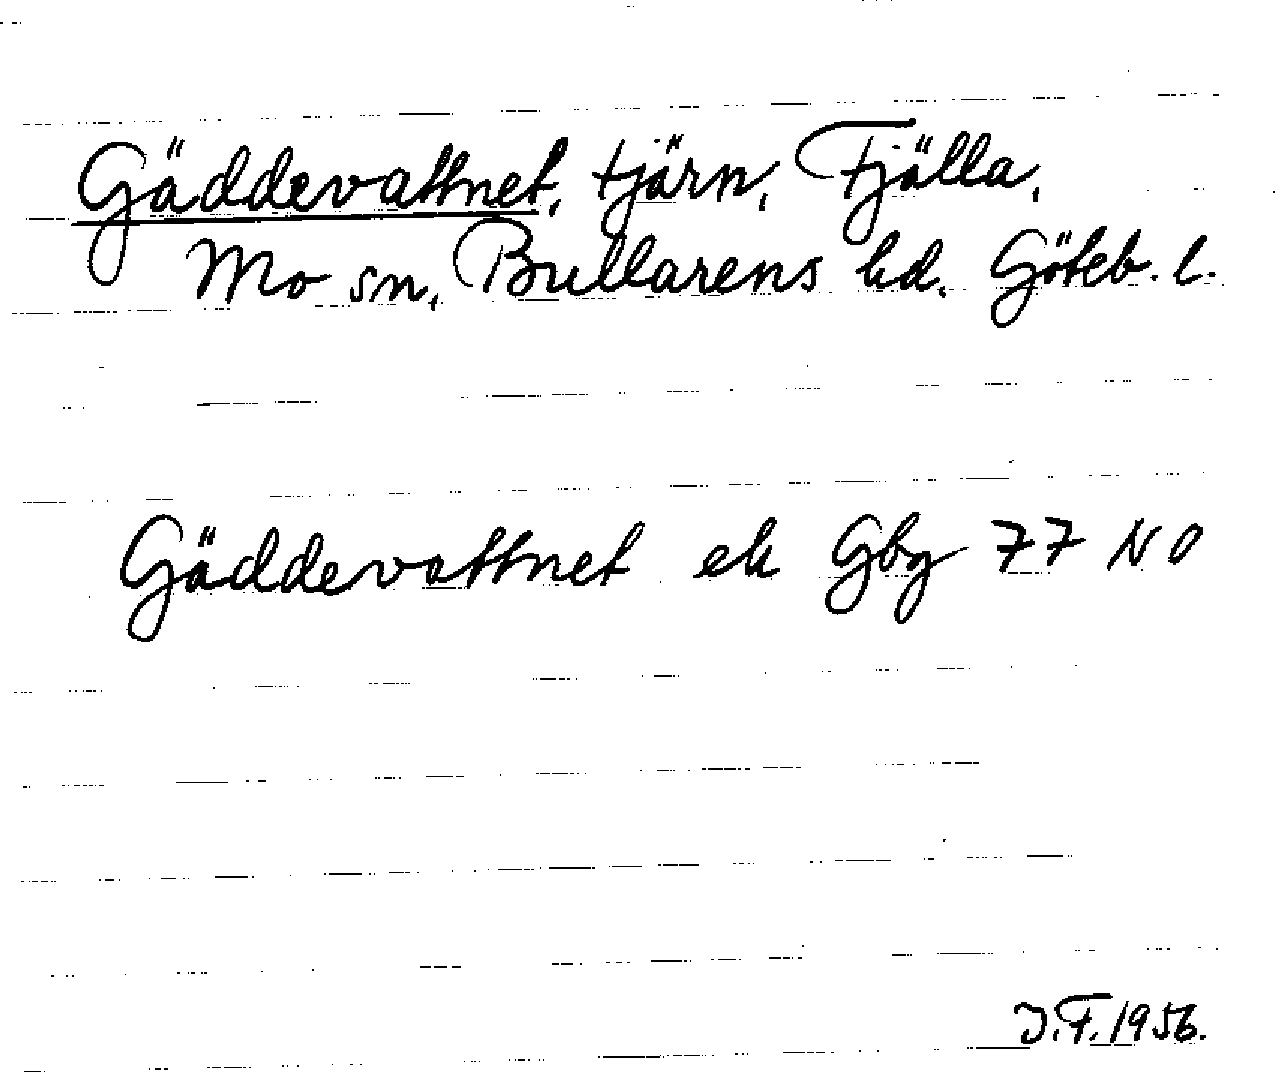 Gäddevattnet, tjärn, Fjälla,
Mo sn, Bullarens hd. Göteb. l.
Gäddevattnet ek Gbg 77 NO
J.F. 1956.